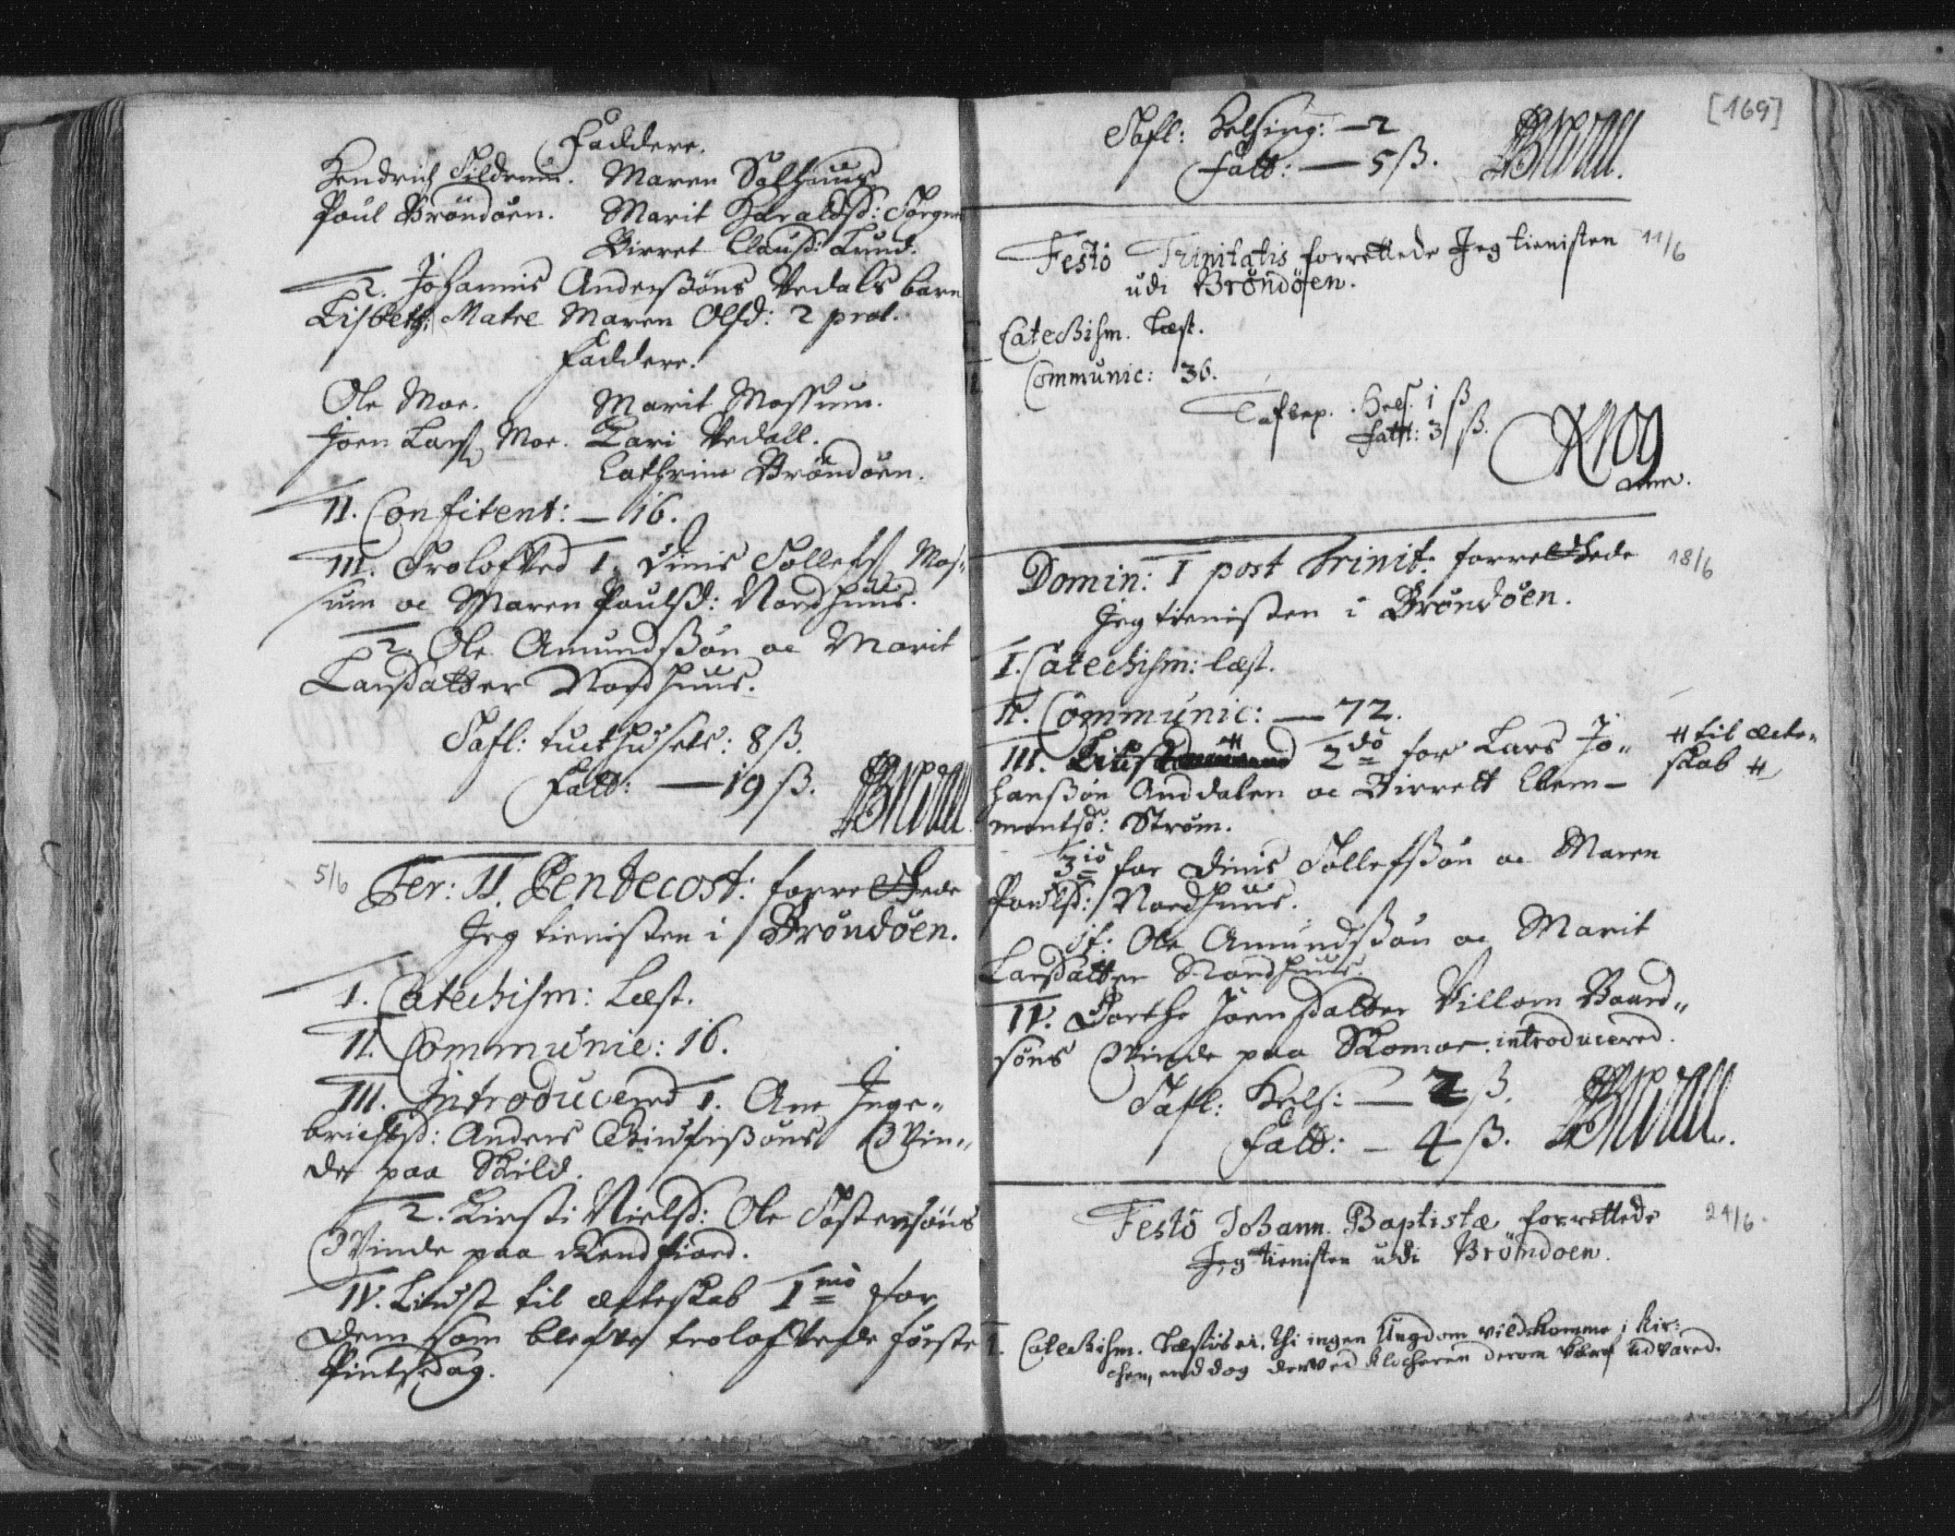 Faddere.
Hendrich Tildrum. Maren Salhuus
Poul Brøndøen. Marit Haraldsd: Torgne
Birret Clausd: Lund.
2. Johannis Anderssøns Vedals barn
Lisbeth, Matre Maren Olsd: 2 præl.
Faddere.
Ole Moe. Marit Mossum.
Joen Lars. Moe. Kari Vedall.
Cathrine Brøndøen.
II. Confitent: — 16.
III. Trolofved 1. Dinis Tollefs. Mos=
sum oc Maren Poulsd: Nordhuus.
2. Ole Amundssøn oc Marit
Larsdatter Nordhuus.
Tafl: tuchthusets: 8 ß.
Fatt: — 19 ß.
5/6 Fer: II. Pentecost: forrettede
Jeg tienisten i Brøndøen.
I. Catechism: Læst.
II. Communic: 16.
III. Introducered 1. Ane Inge=
brichtsd: Anders Qvin
de paa Skild.
2. Kirsti Nielsd: Ole Tostensøns
Qvinde paa Rendfiord.
IV. Liust til ægteskab 1mo for
dem som blefve trolofvede første
Pintzedag.
[169]
Tafl: Helsing: — 2
Fatt: — 5 ß.
Festo Trinitatis forrettede Jeg tienisten 11/6
udi Brøndøen.
Catechism. Læst.
Communic: 36.
Taflep. Hels. 1 ß
Fatt: 3 ß.
Krog
Domin: I post Trinit: forrettede 18/6
Jeg tienisten i Brøndøen.
I. Catechism: læst.
II. Communic: — 72.
III. Liust # 2do for Lars Jo= # til ecte=
hanssøn Anddalen oc Birrett Clem= skab #
mentsd: Strøm.
3io for Dinis Tollefssøn oc Maren
Poulsd: Nordhuus.
it: Ole Amundssøn oc Marit
Larsdatter Nordhuus.
IV. Dorthe Joensdatter Villom Baard=
søns Qvinde paa Skomoe: introducered.
Tafl: Hels: — 2 ß.
Fatt: — 4 ß.
Festo Johann. Baptistæ forrettede 24/6
Jeg tienisten udi Brøndøen.
I. Catechism. Læstis ei, thi ingen Ungdom vilde komme i Kir=
chen, end dog derved Klocheren derom blef advared.